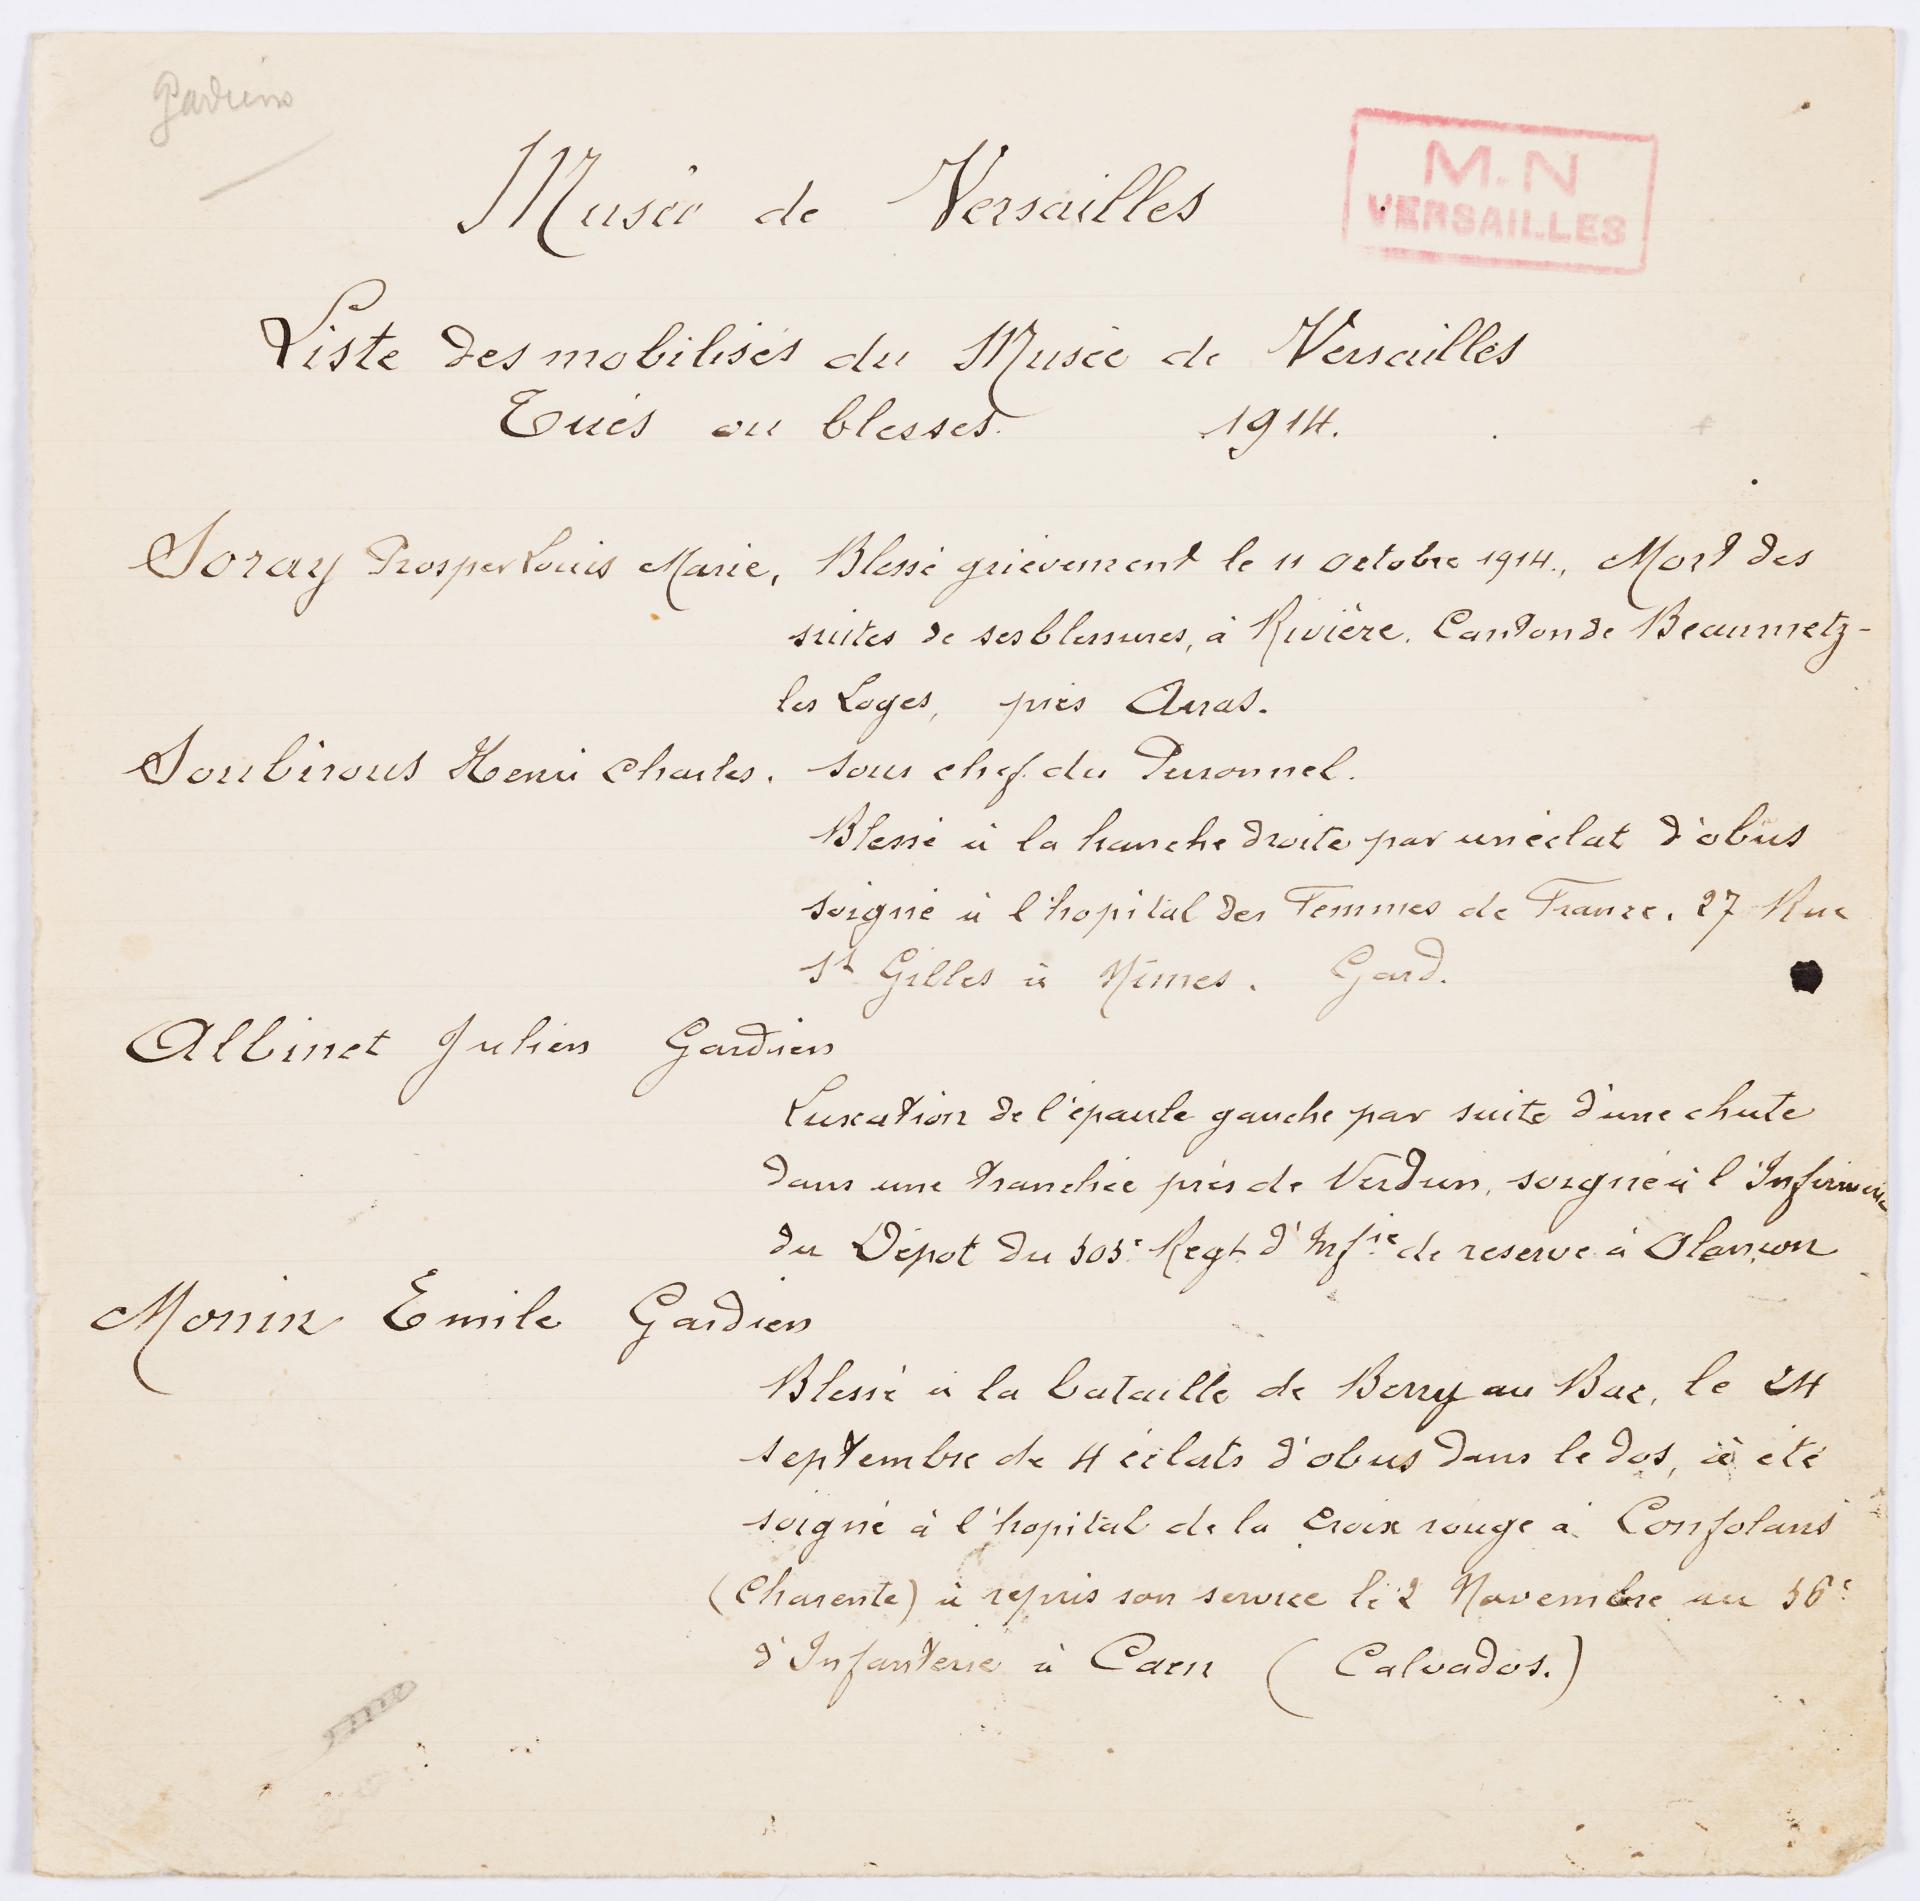 Gardiens
Musée de Versailles
M.N
VERSAILLES
Liste des mobilisés du Musée de Versailles
Tués ou blessés. 1914.
Soray Prosper Louis Marie, Blessé grièvement le 11 octobre 1914., Mort des
suites de ses blessures, à Rivière. Canton de Beaumetz-
les Loges, près Arras.
Soubirous Henri Charles. sous chef du Personnel.
Blessé à la hanche droite par un éclat d'obus
soigné à l'hopital des Femmes de France. 27 Rue
St Gilles à Nîmes. Gard.
Albinet Julien Gardien
Luxation de l'épaule gauche par suite d'une chute
dans une tranchée près de Verdun, soigné à l'Infirmerie
du Dépot du 303e Regt d'Infie de reserve à Alençon
Monin Emile Gardien
Blessé à la bataille de Berry au Bac, le 24
septembre de 4 éclats d'obus dans le dos, à été
soigné à l'hopital de la Croix rouge à Confolans
(Charente) à repris son service le 2 Novembre au 36e
d'Infanterie à Caen (Calvados.)